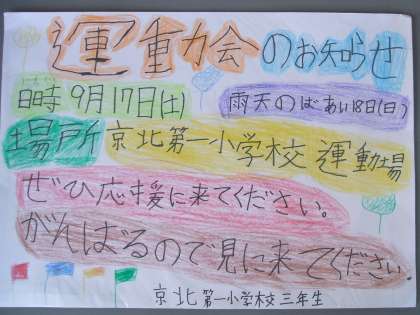 運動会のお知らせ
日時 9月17日(土) 雨天のばあい18日(日)
場所 京北第一小学校 運動場
ぜひ応援に来てください。
がんばるので見に来てください。
京北第一小学校三年生